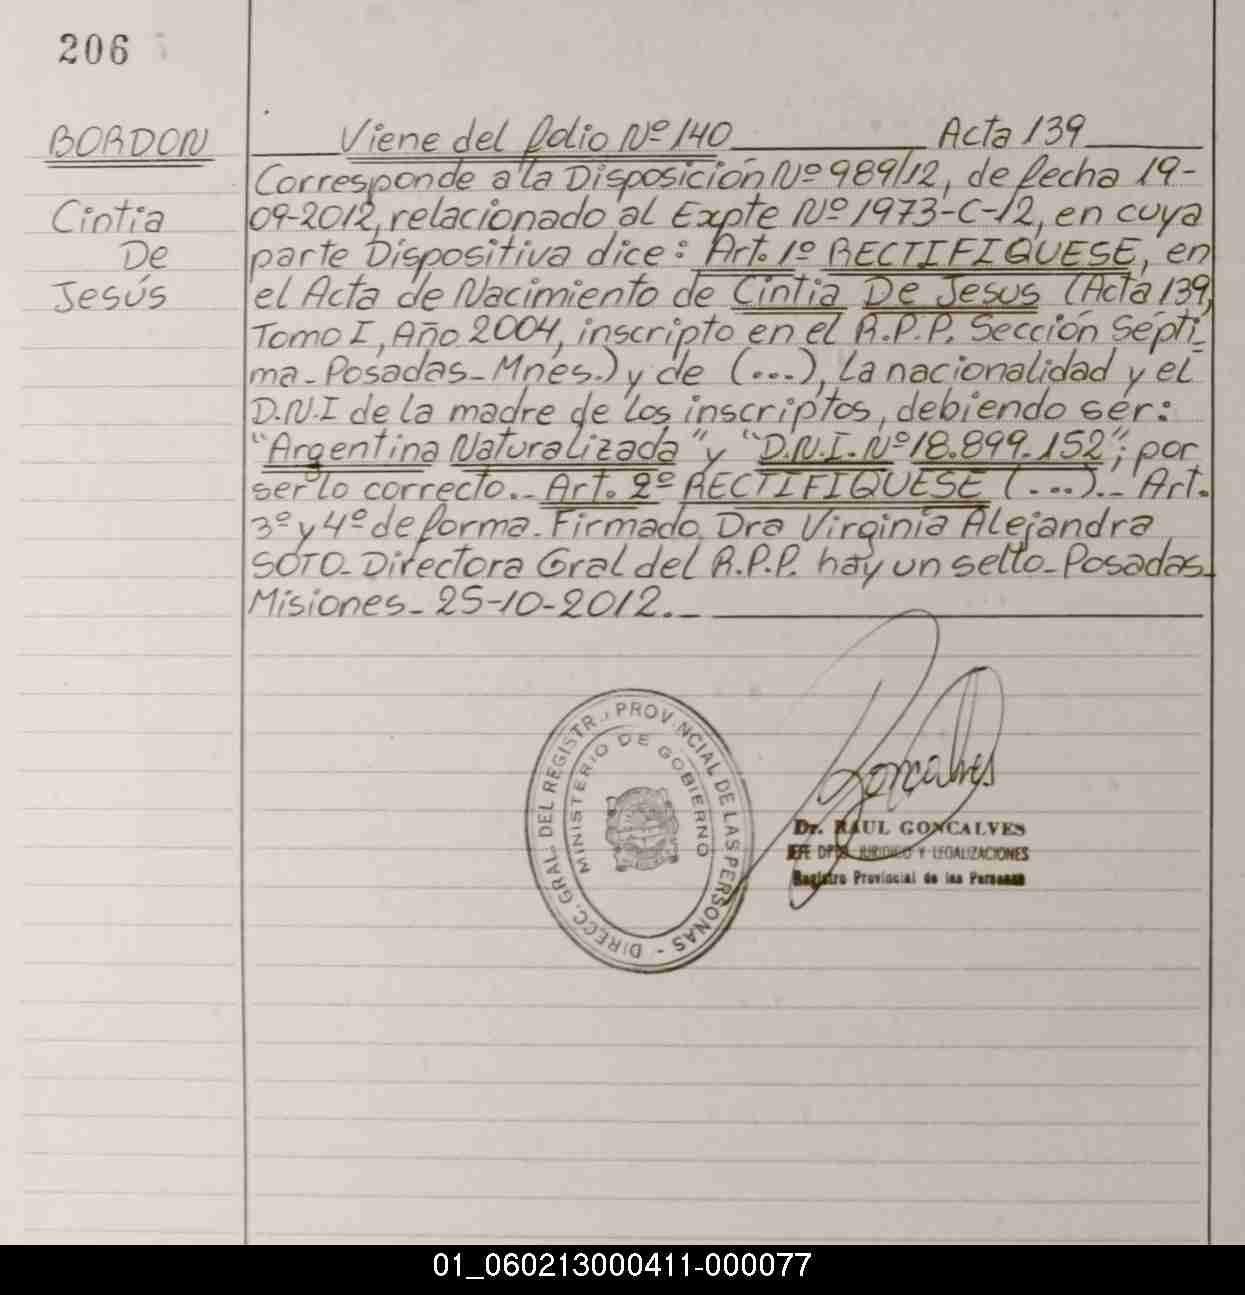 206
BORDON
Cintia
De
Jesús
Viene del folio Nº 140 Acta 139
Corresponde a la Disposición Nº 989/12, de fecha 19-
09-2012, relacionado al Expte Nº 1973-C-12, en cuya
parte Dispositiva dice: Art. 1º RECTIFIQUESE, en
el Acta de Nacimiento de Cintia De Jesus (Acta 139,
Tomo I, Año 2004, inscripto en el R.P.P. Sección Sépti_
ma_ Posadas_ Mnes.) y de (...), la nacionalidad y el
D.N.I de la madre de los inscriptos, debiendo ser:
"Argentina Naturalizada" y "D.N.I. Nº 18.899.152"; por
ser lo correcto._ Art. 2º RECTIFIQUESE (...)._ Art.
3º y 4º de forma. Firmado Dra Virginia Alejandra
SOTO_ Directora Gral del R.P.P. hay un sello_ Posadas_
Misiones_ 25-10-2012._
DIRECC. GRAL. DEL REGISTRO PROVINCIAL DE LAS PERSONAS -
MINISTERIO DE GOBIERNO
Goncalves
Dr. RAUL GONCALVES
JEFE DPTO. JURIDICO Y LEGALIZACIONES
Registro Provincial de las Personas
01_060213000411-000077